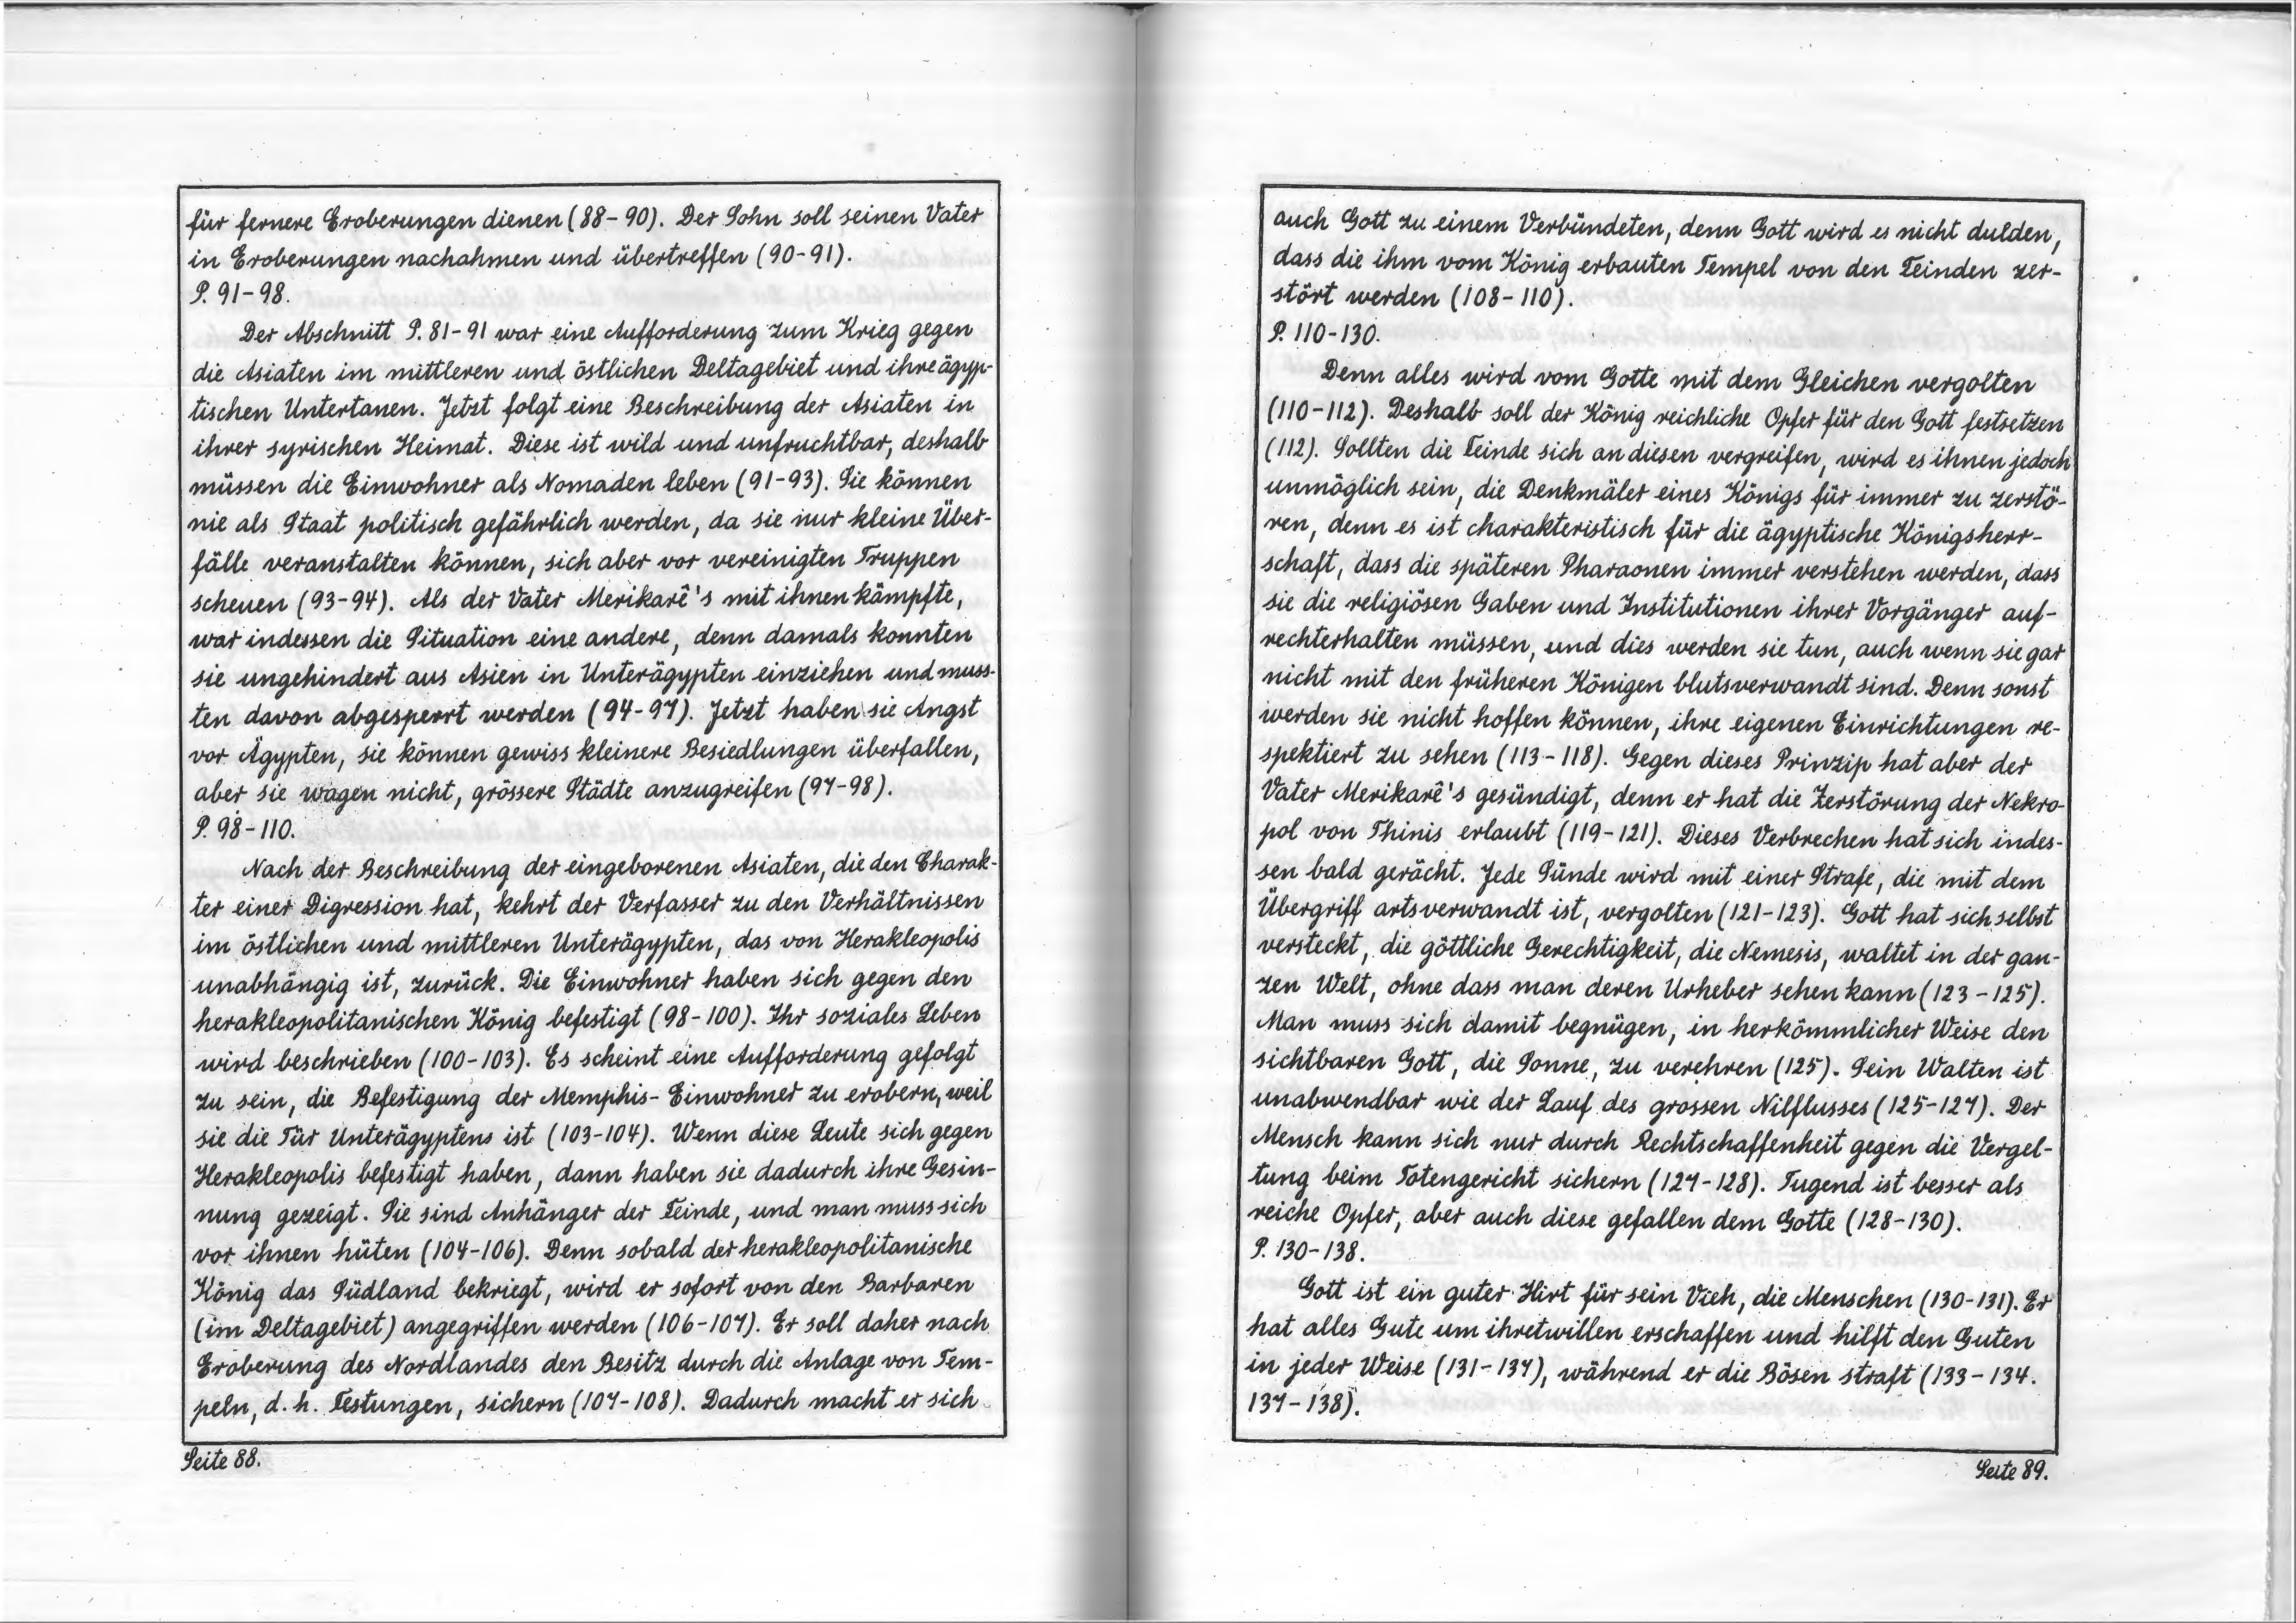 für fernere Eroberungen dienen (88-90). Der Sohn soll seinen Vater
in Eroberungen nachahmen und übertreffen (90-91).
P. 91-98.
Der Abschnitt P. 81-91 war eine Aufforderung zum Krieg gegen
die Asiaten im mittleren und östlichen Deltagebiet und ihre ägyp-
tischen Untertanen. Jetzt folgt eine Beschreibung der Asiaten in
ihrer syrischen Heimat. Diese ist wild und unfruchtbar, deshalb
müssen die Einwohner als Nomaden leben (91-93). Sie können
nie als Staat politisch gefährlich werden, da sie nur kleine Über-
fälle veranstalten können, sich aber vor vereinigten Truppen
scheuen (93-94). Als der Vater Merikarê's mit ihnen kämpfte,
war indessen die Situation eine andere, denn damals konnten
sie ungehindert aus Asien in Unterägypten einziehen und muss-
ten davon abgesperrt werden (94-97). Jetzt haben sie Angst
vor Ägypten, sie können gewiss kleinere Besiedlungen überfallen,
aber sie wagen nicht, grössere Städte anzugreifen (97-98).
P. 98-110.
Nach der Beschreibung der eingeborenen Asiaten, die den Charak-
ter einer Digression hat, kehrt der Verfasser zu den Verhältnissen
im östlichen und mittleren Unterägypten, das von Herakleopolis
unabhängig ist, zurück. Die Einwohner haben sich gegen den
herakleopolitanischen König befestigt (98-100). Ihr soziales Leben
wird beschrieben (100-103). Es scheint eine Aufforderung gefolgt
zu sein, die Befestigung der Memphis-Einwohner zu erobern, weil
sie die Tür Unterägyptens ist (103-104). Wenn diese Leute sich gegen
Herakleopolis befestigt haben, dann haben sie dadurch ihre Gesin-
nung gezeigt. Sie sind Anhänger der Feinde, und man muss sich
vor ihnen hüten (104-106). Denn sobald der herakleopolitanische
König das Südland bekriegt, wird er sofort von den Barbaren
(im Deltagebiet) angegriffen werden (106-107). Er soll daher nach
Eroberung des Nordlandes den Besitz durch die Anlage von Tem-
peln, d. h. Festungen, sichern (107-108). Dadurch macht er sich
Seite 88.
auch Gott zu einem Verbündeten, denn Gott wird es nicht dulden,
dass die ihm vom König erbauten Tempel von den Feinden zer-
stört werden (108-110).
P. 110-130.
Denn alles wird vom Gotte mit dem Gleichen vergolten
(110-112). Deshalb soll der König reichliche Opfer für den Gott festsetzen
(112). Sollten die Feinde sich an diesen vergreifen, wird es ihnen jedoch
unmöglich sein, die Denkmäler eines Königs für immer zu zerstö-
ren, denn es ist charakteristisch für die ägyptische Königsherr-
schaft, dass die späteren Pharaonen immer verstehen werden, dass
sie die religiösen Gaben und Institutionen ihrer Vorgänger auf-
rechterhalten müssen, und dies werden sie tun, auch wenn sie gar
nicht mit den früheren Königen blutsverwandt sind. Denn sonst
werden sie nicht hoffen können, ihre eigenen Einrichtungen re-
spektiert zu sehen (113-118). Gegen dieses Prinzip hat aber der
Vater Merikarê's gesündigt, denn er hat die Zerstörung der Nekro-
pol von Thinis erlaubt (119-121). Dieses Verbrechen hat sich indes-
sen bald gerächt. Jede Sünde wird mit einer Strafe, die mit dem
Übergriff artsverwandt ist, vergolten (121-123). Gott hat sich selbst
versteckt, die göttliche Gerechtigkeit, die Nemesis, waltet in der gan-
zen Welt, ohne dass man deren Urheber sehen kann (123-125).
Man muss sich damit begnügen, in herkömmlicher Weise den
sichtbaren Gott, die Sonne, zu verehren (125). Sein Walten ist
unabwendbar wie der Lauf des grossen Nilflusses (125-127). Der
Mensch kann sich nur durch Rechtschaffenheit gegen die Vergel-
tung beim Totengericht sichern (127-128). Tugend ist besser als
reiche Opfer, aber auch diese gefallen dem Gotte (128-130).
P. 130-138.
Gott ist ein guter Hirt für sein Vieh, die Menschen (130-131). Er
hat alles Gute um ihretwillen erschaffen und hilft den Guten
in jeder Weise (131-137), während er die Bösen straft (133-134.
137-138).
Seite 89.